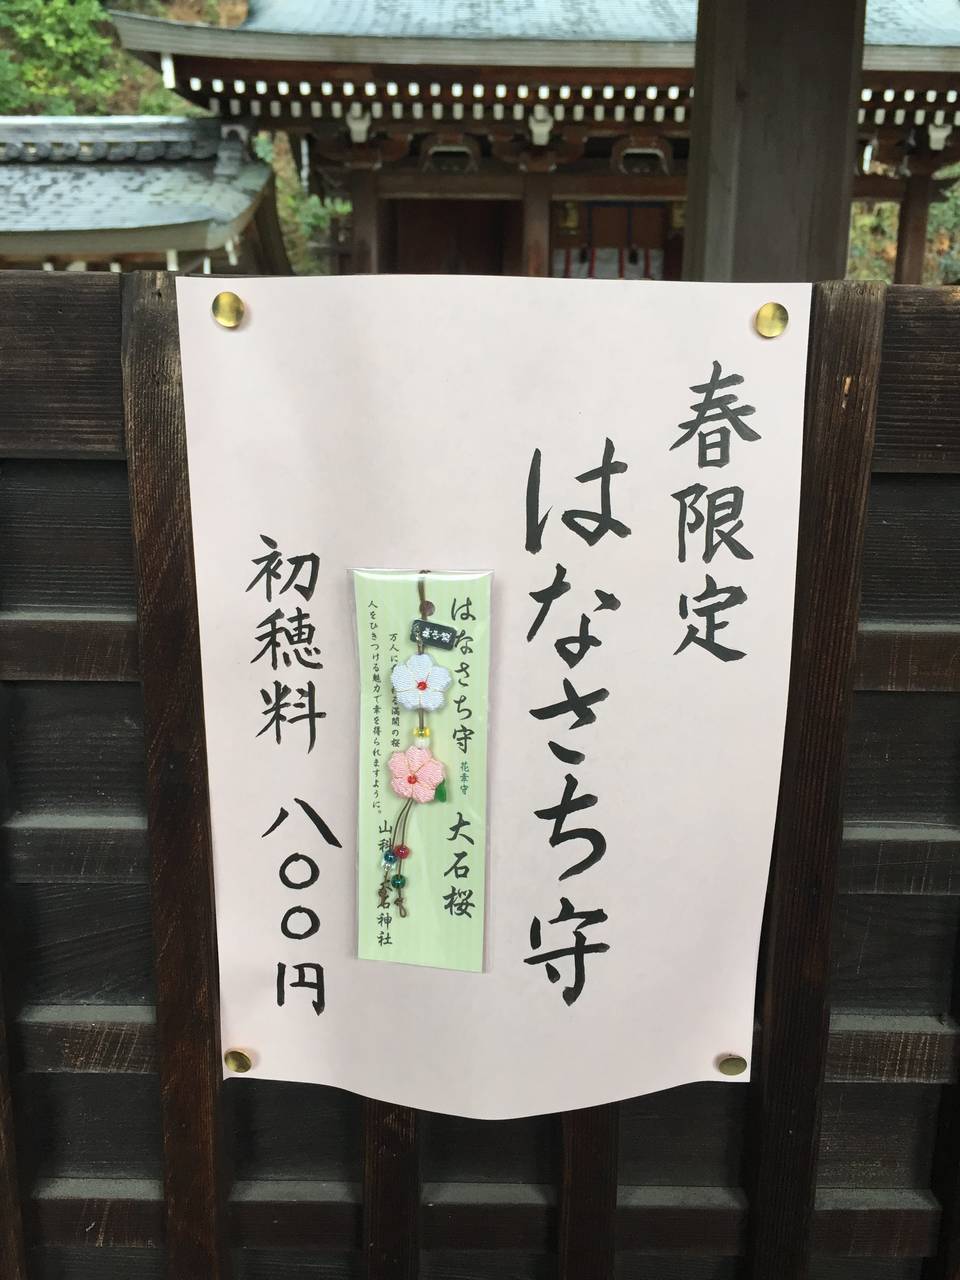 春限定
はなさち守
はなさち守 花幸守 大石桜
万人に
満開の桜
人をひきつける魅力で幸を得られますように。
山科 大石神社
初穂料 八〇〇円